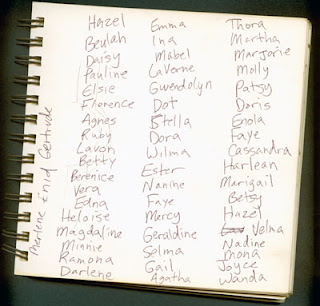 Hazel Emma Thora
Beulah Ina Martha
Daisy Mabel Marjorie
Pauline LaVerne Molly
Elsie Gwendolyn Patsy
Florence Dot Doris
Agnes Stella Enola
Ruby Dora Faye
Lavon Wilma Cassandra
Betty Ester Harlean
Berenice Nanine Marigail
Vera Faye Betsy
Edna Mercy Hazel
Heloise Geraldine Velma
Magdaline Selma Nadine
Minnie Gail Mona
Ramona Agatha Joyce
Darlene Wanda
Marlene Enid Gertrude